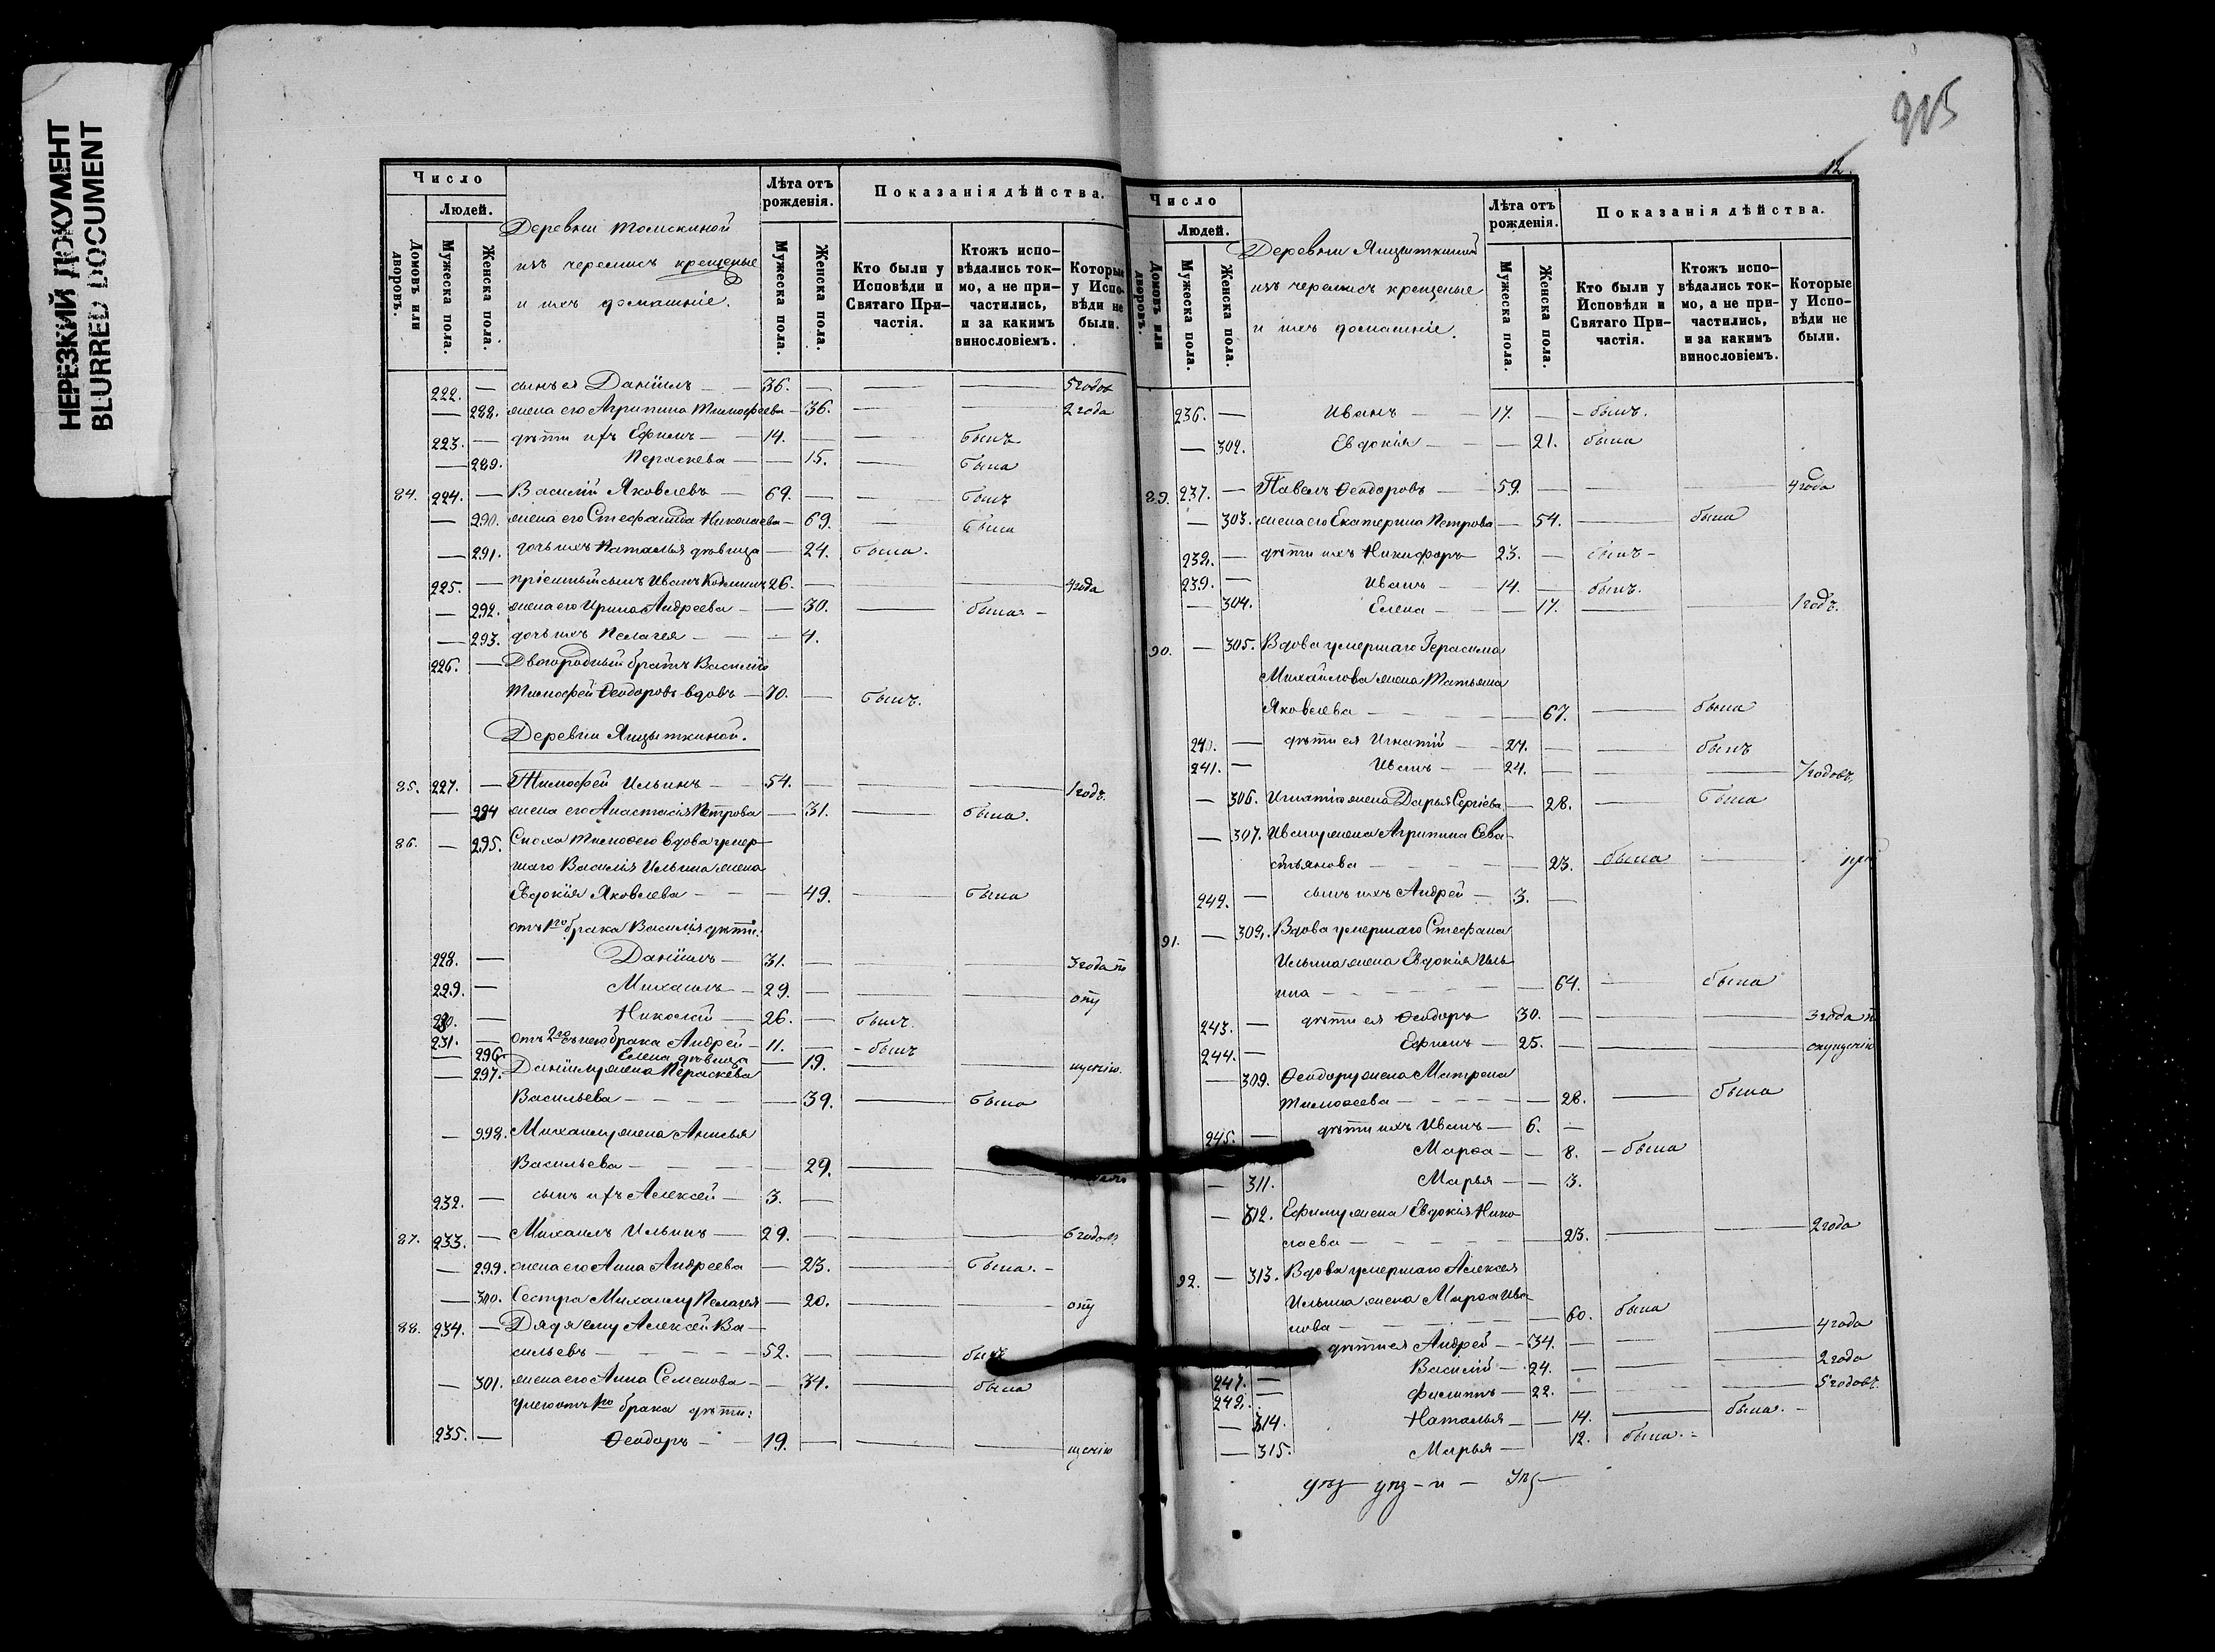 НЕРЕЗКИЙ ДОКУМЕНТ
BLURRED DOCUMENT
Число
Людей.
Домовъ или дворовъ.
Мужеска пола.
Женска пола.
Деревни
изъ черемисъ крещеные
и ихъ домашніе.
Лѣта отъ рожденія.
Мужеска пола.
Женска пола.
Показанія дѣйства.
Кто были у Исповѣди и Святаго При-частія.
Ктожъ испо-вѣдались ток-мо, а не при-частились, и за какимъ винословіемъ.
Которые у Испо-вѣди не были.
222. — сынъ ея Даніилъ — 36. — — — 5 годов
— 288. жена его Агрипина Тимофеева — 36. — — 2 года
223. — дѣти ихъ Ефимъ — 14. — — былъ
— 289. Параскева — — 15. — была
84. 224. — Василій Яковлевъ — 69. — — былъ
— 290. жена его Стефанида Николаева — 69. — была
— 291. дочь ихъ Наталья дѣвица — 24. была.
225. — пріемный сынъ Иванъ 26. — — — 4 года
— 292. жена его Ирина Андреева — — 30. — была. —
— 293. дочь ихъ Пелагея — — — 4.
226. — Двоюродный братъ Василію
Тимофей Ѳеодоровъ вдовъ — 70. — былъ.
Деревни
85. 227. — Тимофей Ильинъ — 54. — — — 1 годъ.
— 294 жена его Анастасія Петрова — 31. — была.
86. — 295. Сноха Тимоѳею вдова умер-
шаго Василія Ильина жена
Евдокія Яковлева — — — 49. — была
отъ 1го брака Василья дѣти:
228. — Даніилъ — 31. — — — 3 года по
229. — Михаилъ — 29. — — — опу
230. — Николай — 26. — былъ.
231. — отъ 2го брака Андрей — 11. — - былъ
— 296 Елена дѣвица — 19. — — щенію.
— 297. Даніилу жена Параскева
Васильева — — — — — 39. — была
— 298. Михаилу жена Анисья
Васильева — — — — — 29. — —
232. — сынъ ихъ Алексей — 3. —
87. 233. — Михаилъ Ильинъ — 29. — — — 6 годов.
— 299. жена его Анна Андреева — 23. — была. -
— 300. Сестра Михаилу Пелагея — 20. — — опу
88. 234. — Дядя ему Алексей Ва-
сильевъ — — — — — 52. — — былъ
— 301. жена его Анна Семенова — — 34. — была
у него отъ 1го брака дѣти:
235. — Ѳеодоръ — — 19. — — — щенію
915
12.
Число
Людей.
Домовъ или дворовъ.
Мужеска пола.
Женска пола.
Деревни
изъ черемисъ крещеные
и ихъ домашніе.
Лѣта отъ рожденія.
Мужеска пола.
Женска пола.
Показанія дѣйства.
Кто были у Исповѣди и Святаго При-частія.
Ктожъ испо-вѣдались ток-мо, а не при-частились, и за какимъ винословіемъ.
Которые у Испо-вѣди не были.
236. — Иванъ — — 17. — - былъ.
— 302. Евдокія — — — 21. была
89. 237. — Павелъ Ѳеодоровъ — 59. — — — 4 года
— 303. жена его Екатерина Петрова — 54. — была
238. — дѣти ихъ Никифоръ 23. — былъ -
239. — Иванъ — 14. — былъ.
— 304. Елена — — — 17. — — 1 годъ.
90. — 305. Вдова умершаго Герасима
Михайлова жена Татьяна
Яковлева — — — — — 67. — была
240. — дѣти ея Игнатій — 27. — — былъ
241. — Иванъ — — 24. — — — 7 годовъ.
— 306. Игнатію жена Дарья Сергіева — 28. — была
— 307. Ивану жена Агрипина Сева-
стьянова — — — — 23. была —
242. — сынъ ихъ Андрей — 3. —
91. — 308. Вдова умершаго Стефана
Ильина жена Евдокія Иль-
ина — — — — — 64. — была
243. — дѣти ея Ѳеодоръ 30. — — — 3 года по
244. — Ефимъ — 25. — — — опущенію
— 309. Ѳеодору жена Матрена
Тимоѳеева — — — — 28. — была
245. — дѣти ихъ Иванъ — 6. —
Марѳа — — 8. — была
— 311. Марья — — 3.
— 312. Ефиму жена Евдокія Нико-
лаева — — — — — 23. — — 2 года
92. — 313. Вдова умершаго Алексея
Ильина жена Марѳа Ива-
нова — — — — — 60. была
дѣти ея Андрей — 34. — — — 4 года
247. — Василій — 24. — — — 2 года
248. — Филипъ — 22. — — — 5 годовъ.
— 314. Наталья — — 14. — была. -
— 315. Марья — 12. была. -